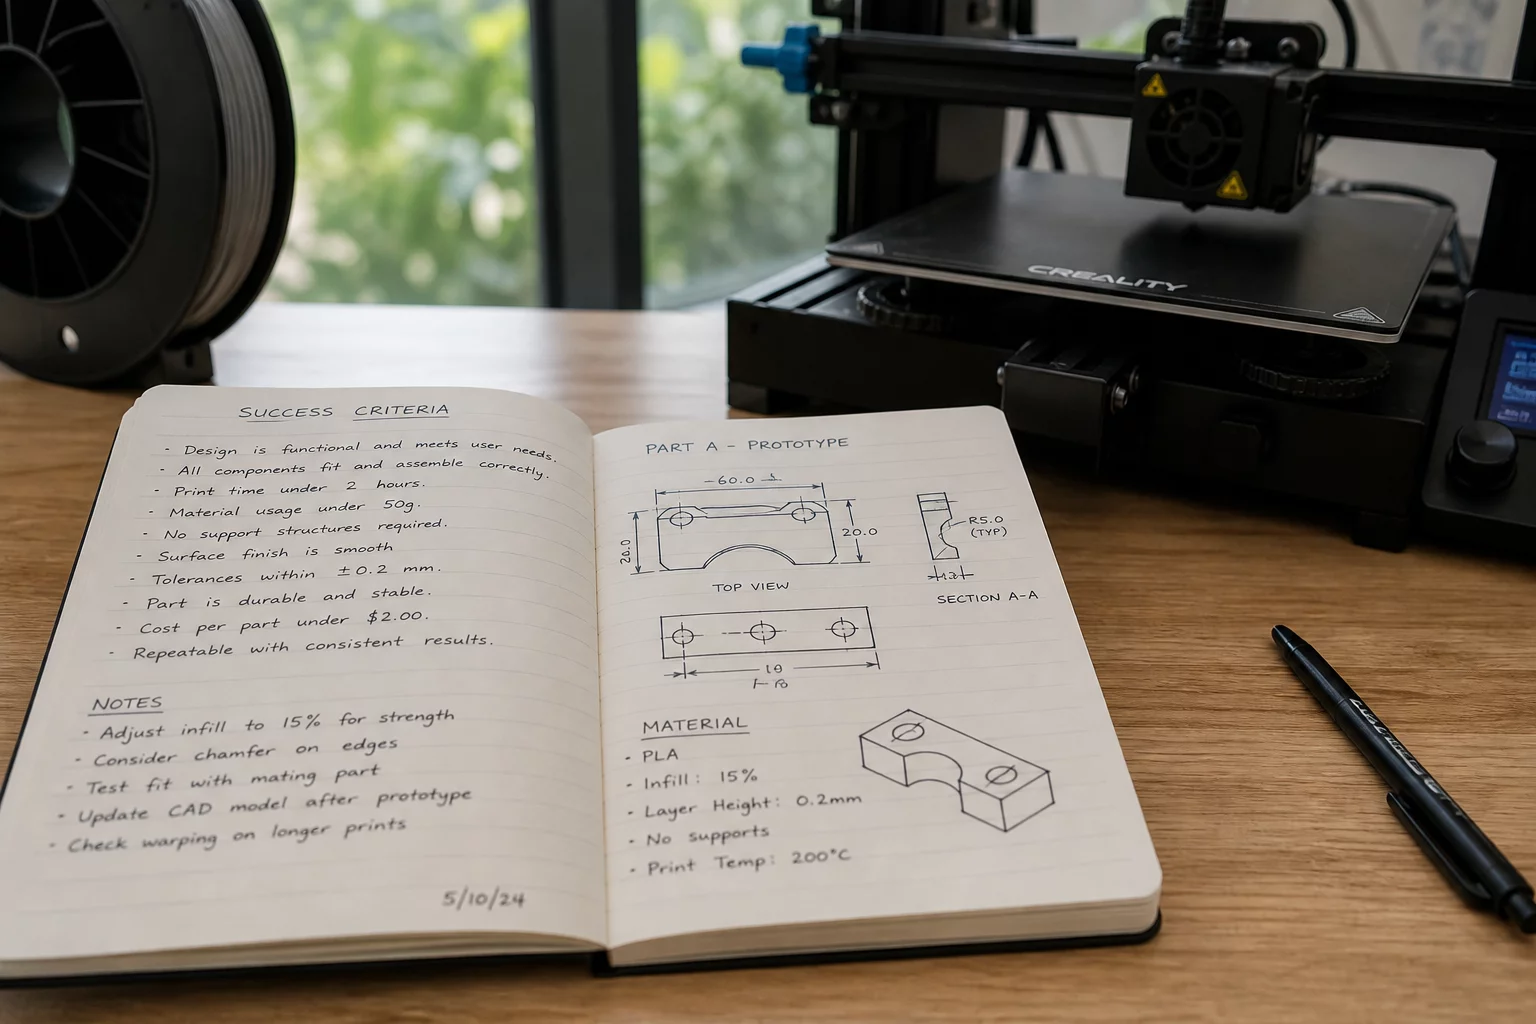 CREALITY
SUCCESS CRITERIA
- Design is functional and meets user needs.
- All components fit and assemble correctly.
- Print time under 2 hours.
- Material usage under 50g.
- No support structures required.
- Surface finish is smooth
- Tolerances within ±0.2 mm.
- Part is durable and stable.
- Cost per part under $2.00.
- Repeatable with consistent results.
NOTES
- Adjust infill to 15% for strength
- Consider chamfer on edges
- Test fit with mating part
- Update CAD model after prototype
- Check warping on longer prints
5/10/24
PART A - PROTOTYPE
60.0
20.0
20.0
TOP VIEW
R5.0
(TYP)
SECTION A-A
MATERIAL
- PLA
- Infill: 15%
- Layer Height: 0.2mm
- No supports
- Print Temp: 200°C